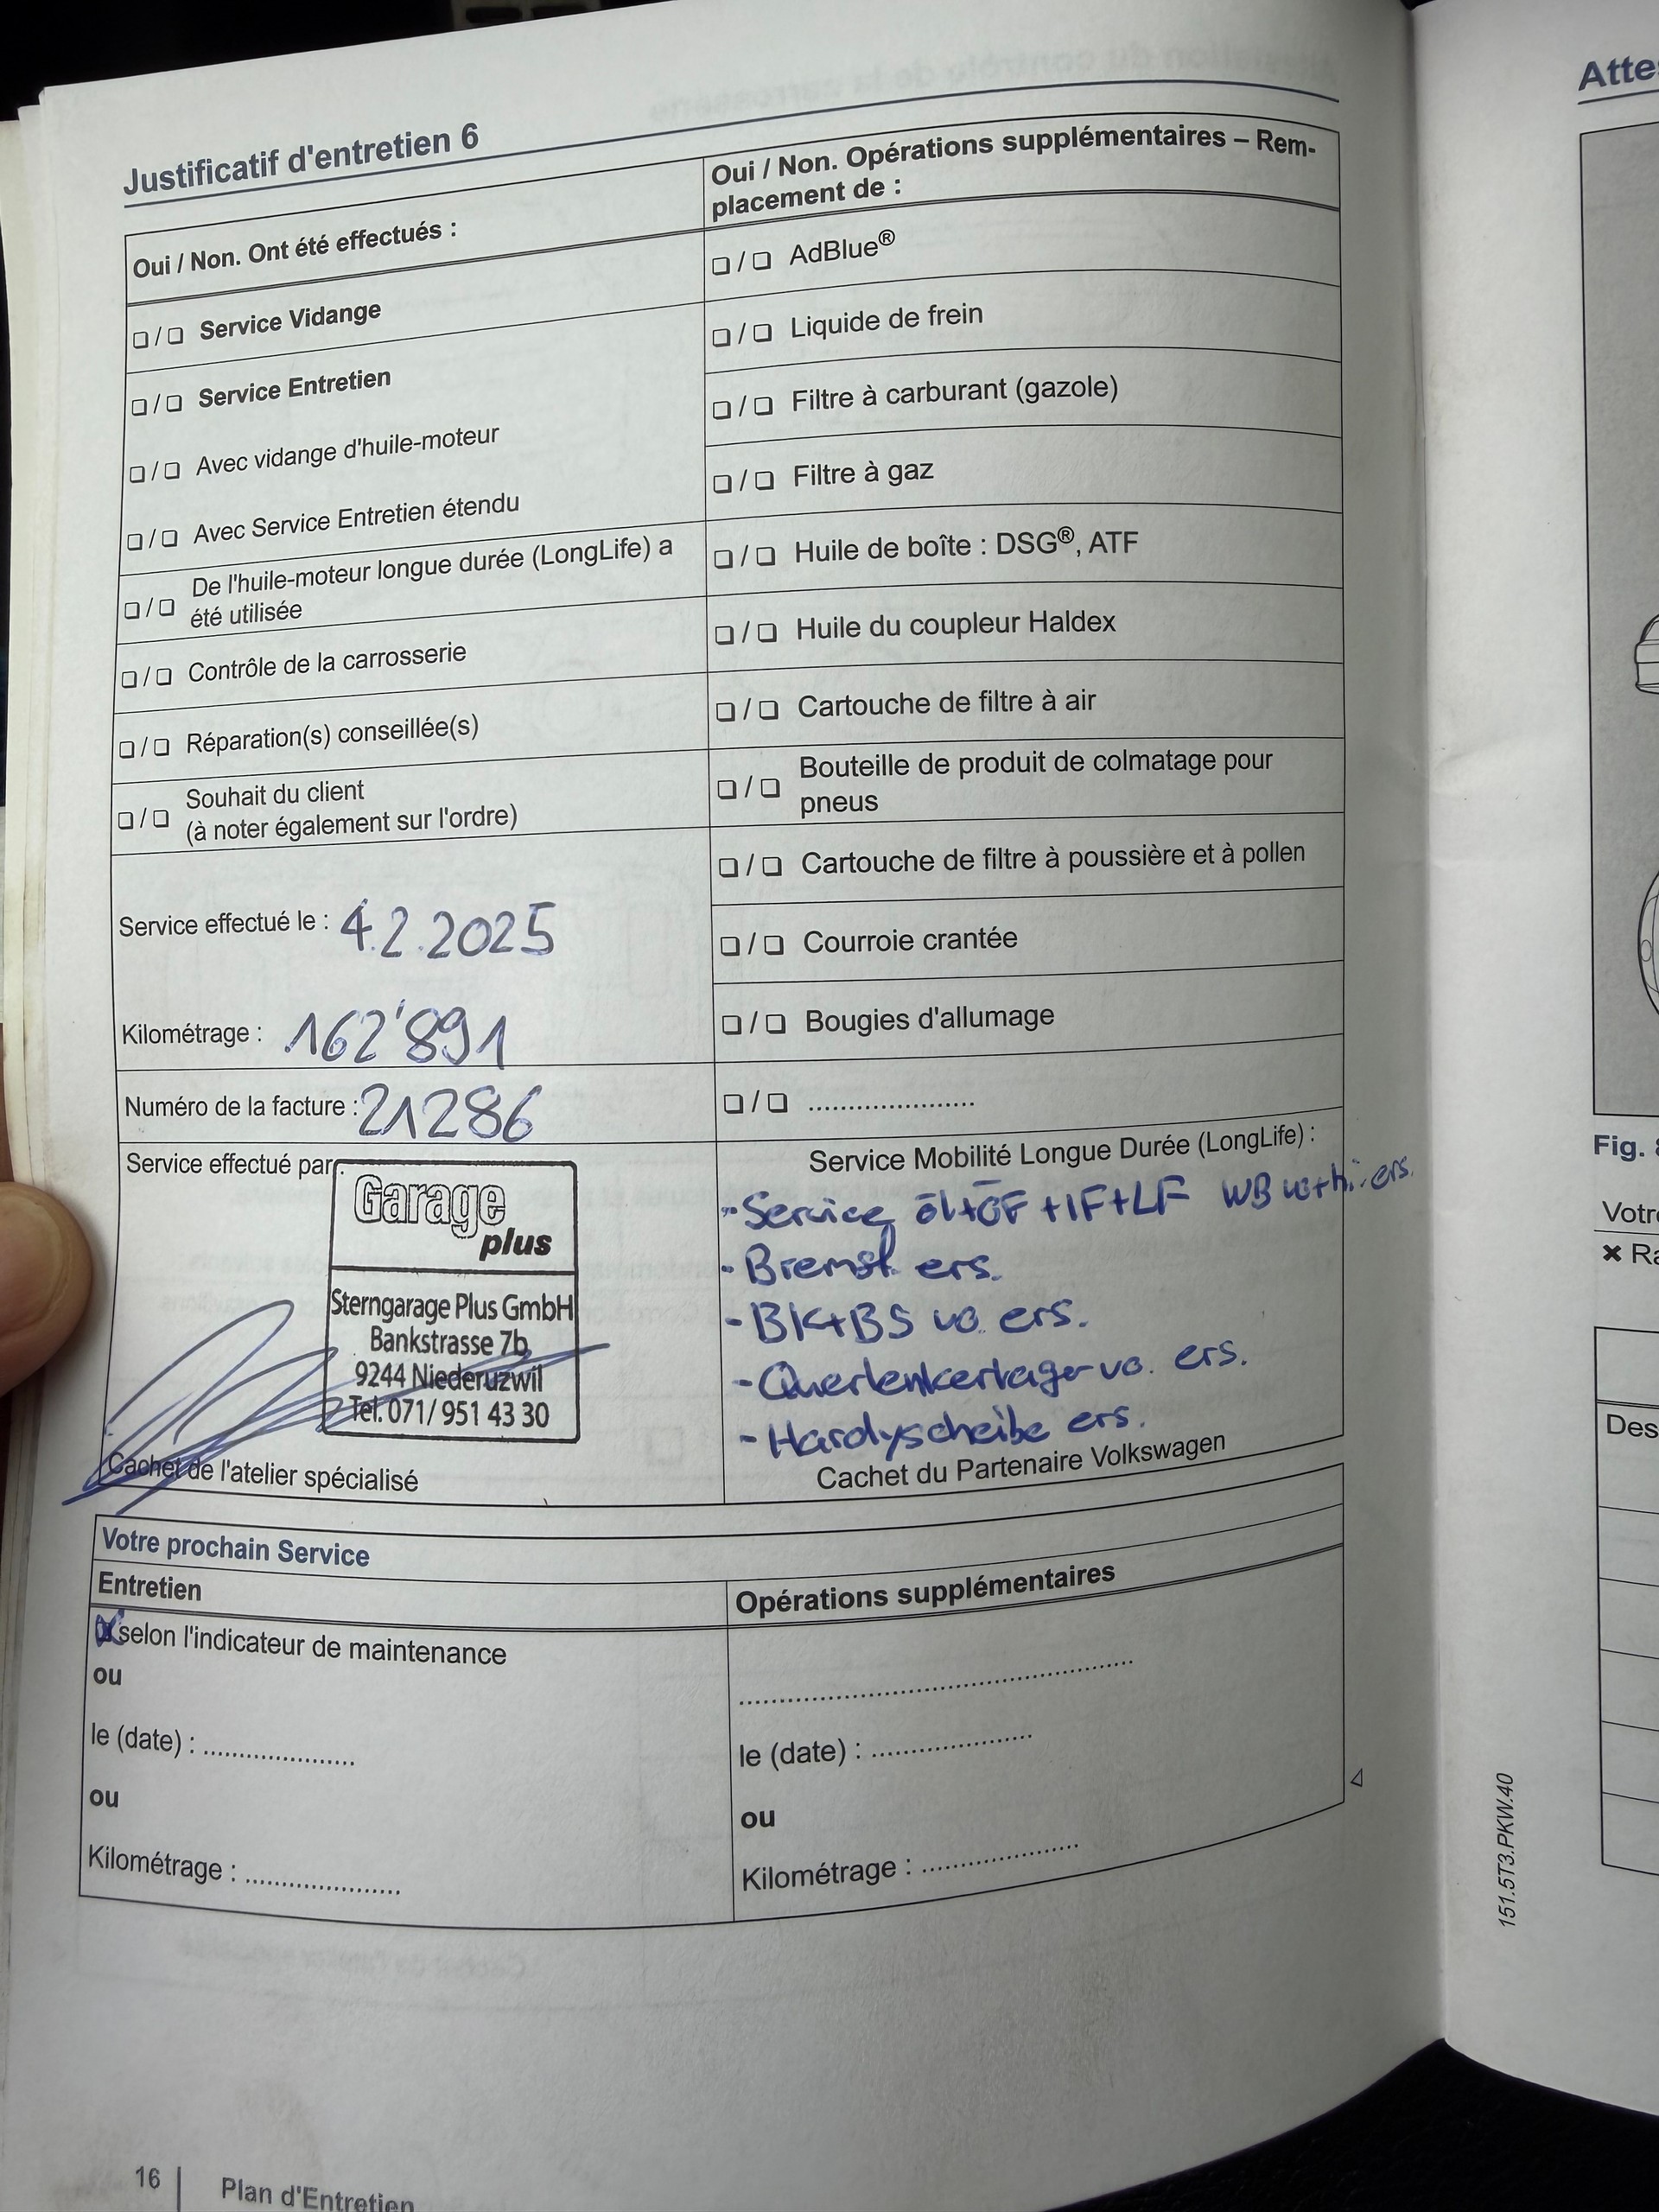 Justificatif d'entretien 6
Oui / Non. Ont été effectués :
❑ / ❑ Service Vidange
❑ / ❑ Service Entretien
❑ / ❑ Avec vidange d'huile-moteur
❑ / ❑ Avec Service Entretien étendu
❑ / ❑ De l'huile-moteur longue durée (LongLife) a
été utilisée
❑ / ❑ Contrôle de la carrosserie
❑ / ❑ Réparation(s) conseillée(s)
❑ / ❑ Souhait du client
(à noter également sur l'ordre)
Service effectué le : 4.2.2025
Kilométrage : 162'891
Numéro de la facture : 21286
Service effectué par :
Garage
plus
Sterngarage Plus GmbH
Bankstrasse 7b
9244 Niederuzwil
Tel. 071/ 951 43 30
Cachet de l'atelier spécialisé
Oui / Non. Opérations supplémentaires – Rem-
placement de :
❑ / ❑ AdBlue®
❑ / ❑ Liquide de frein
❑ / ❑ Filtre à carburant (gazole)
❑ / ❑ Filtre à gaz
❑ / ❑ Huile de boîte : DSG®, ATF
❑ / ❑ Huile du coupleur Haldex
❑ / ❑ Cartouche de filtre à air
❑ / ❑ Bouteille de produit de colmatage pour
pneus
❑ / ❑ Cartouche de filtre à poussière et à pollen
❑ / ❑ Courroie crantée
❑ / ❑ Bougies d'allumage
❑ / ❑ .....................
Service Mobilité Longue Durée (LongLife) :
- Service öl+ÖF+IF+LF WB ers.
- Bremsfl. ers.
- BK+BS vo. ers.
- Querlenkerlager vo. ers.
- Hardyscheibe ers.
Cachet du Partenaire Volkswagen
Votre prochain Service
Entretien
selon l'indicateur de maintenance
ou
le (date) : .....................
ou
Kilométrage : .....................
Opérations supplémentaires
..................................................
le (date) : .....................
ou
Kilométrage : .....................
151.5T3.PKW.40
16 | Plan d'Entretien
Atte
Fig.
Votre
✖ Ra
Des